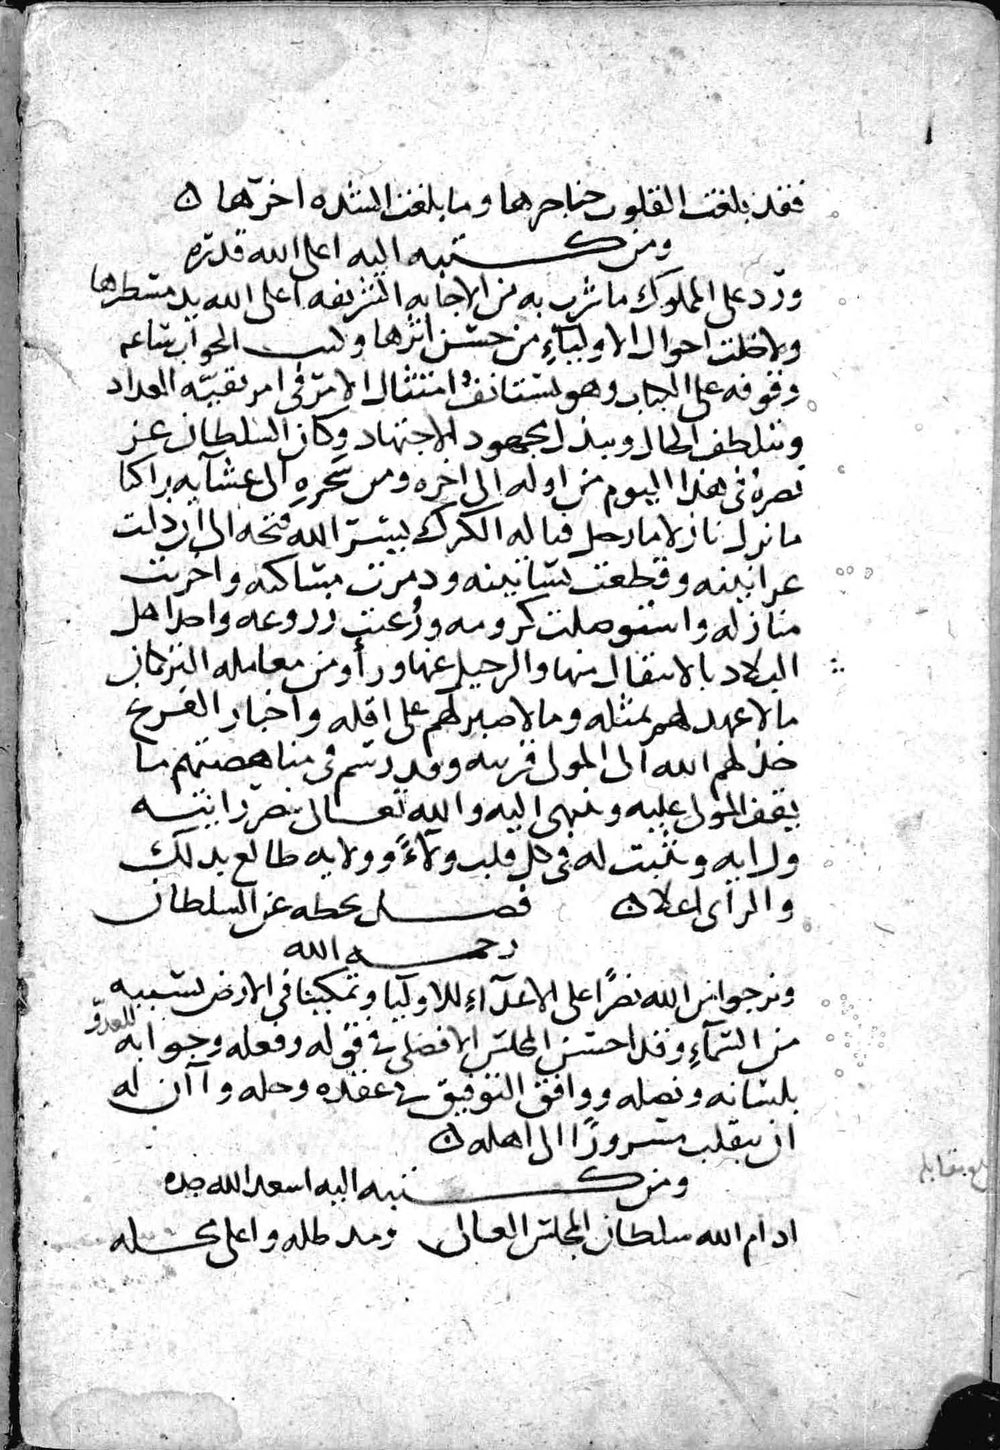 فقد بلغت القلوب حناجرها وما بلغت الشده اخرتها ن
ومن كتبه اليه اعلى الله قدره
ورد على المملوك ما شرف به من الاجابه الشريفه اعلى الله يد مسطرها
ولا خلت احوال الاولياء من حسن اثرها وكتب الجواب ساعه
وقوفه على الكتاب وهو يستانف امتثال الامر فى امر بقيه العداد
ويتلطف الحال ويبذل مجهود الاجتهاد وكان السلطان عز
نصره فى هذا اليوم من اوله الى اخره ومن سحره الى عشايه راكبا
ما نزل نازلا ما رحل قباله الكرك يسر الله فتحه الى ان ذلت
عرانينه وقطعت بساتينه ودمرت مساكنه واخربت
منازله واستوصلت كرومه ورُعيت زروعه واخذ اهل
البلاد بالانتقال منها والرحيل عنها وراوا من معامله التركمان
ما لا عهد لهم بمثله وما لا صبر لهم على اقله واخبار الفرنج
خذلهم الله الى المولى قريبه وقد رسم فى مناهضتهم ما
يقف المولى عليه وينهى اليه والله تعالى ينصر رايته
ورايه ويثبت له فى كل قلب ولاءً وولايه طالع بذلك
والراى اعلا ن فصل بخطه عن السلطان
رحمه الله
ونرجوا من الله نصرًا على الاعداء للاوليا وتمكينا فى الارض بسببه
من السماء وقد احسن المجلس الافضلى فى قوله وفعله وجوابه للعدوّ
بلسانه ونصله ووافق التوفيق فى عقده وحله وآن له
ان ينقلب مسرورًا الى اهله ن
ومن كتبه اليه اسعد الله جده
ادام الله سلطان المجلس العالى ومد ظله واعلى محله
بلغ مقابله